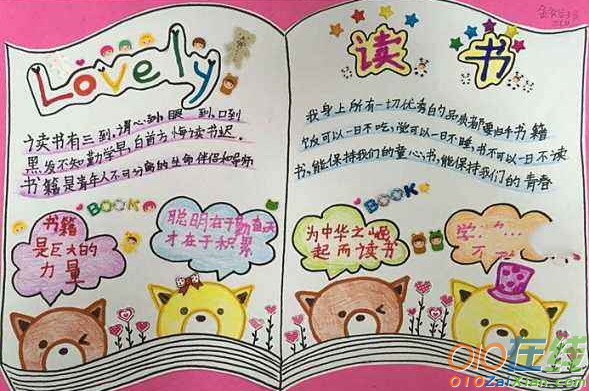 Lovely
读书有三到,谓心到,眼到,口到
黑发不知勤学早,白首方悔读书迟.
书籍是青年人不可分离的生命伴侣和导师
BOOK
书籍
是巨大的
力量
聪明在于勤奋,天
才在于积累
读书
我身上所有一切优秀的品质都要归于书籍
饭可以一日不吃,觉可以一日不睡,书不可以一日不读
书,能保持我们的童心;书,能保持我们的青春
BOOK
为中华之崛
起而读书
学
不
010在线
010zaixian.com